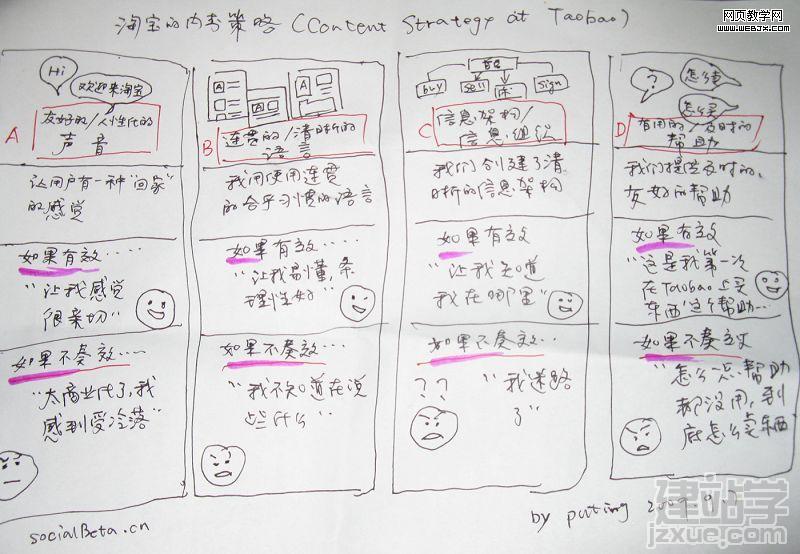 淘宝的内容策略 (Content Strategy at Taobao)
网页教学网
www.WEBJX.com
Hi
欢迎来淘宝
A
友好的/人性化的
声音
让用户有一种"回家"
的感觉
如果有效....
"让我感觉
很亲切"
如果不奏效...
"太商业化了,我
感到受冷落"
A
A
B
连贯的/清晰的
语言
我们使用连贯
的合乎习惯的语言
如果有效....
"让我易懂,条
理性好"
如果不奏效...
"我不知道在说
些什么"
首页
buy
sell
sign
C
信息架构/
信息组织
我们创建了清
晰的信息架构
如果有效
"让我知道
我在哪里"
如果不奏效...
? ? "我迷路
了"
?
怎么卖
怎么买
D
有用的/及时的
帮助
我们提供及时的、
友好的帮助
如果有效
"这是我第一次
在Taobao上买
东西'这个帮助...
如果不奏效
"怎么一点帮助
都没用,到
底怎么卖东西
socialBeta.cn
by puting 2009.9.7
建站学
jzxue.com